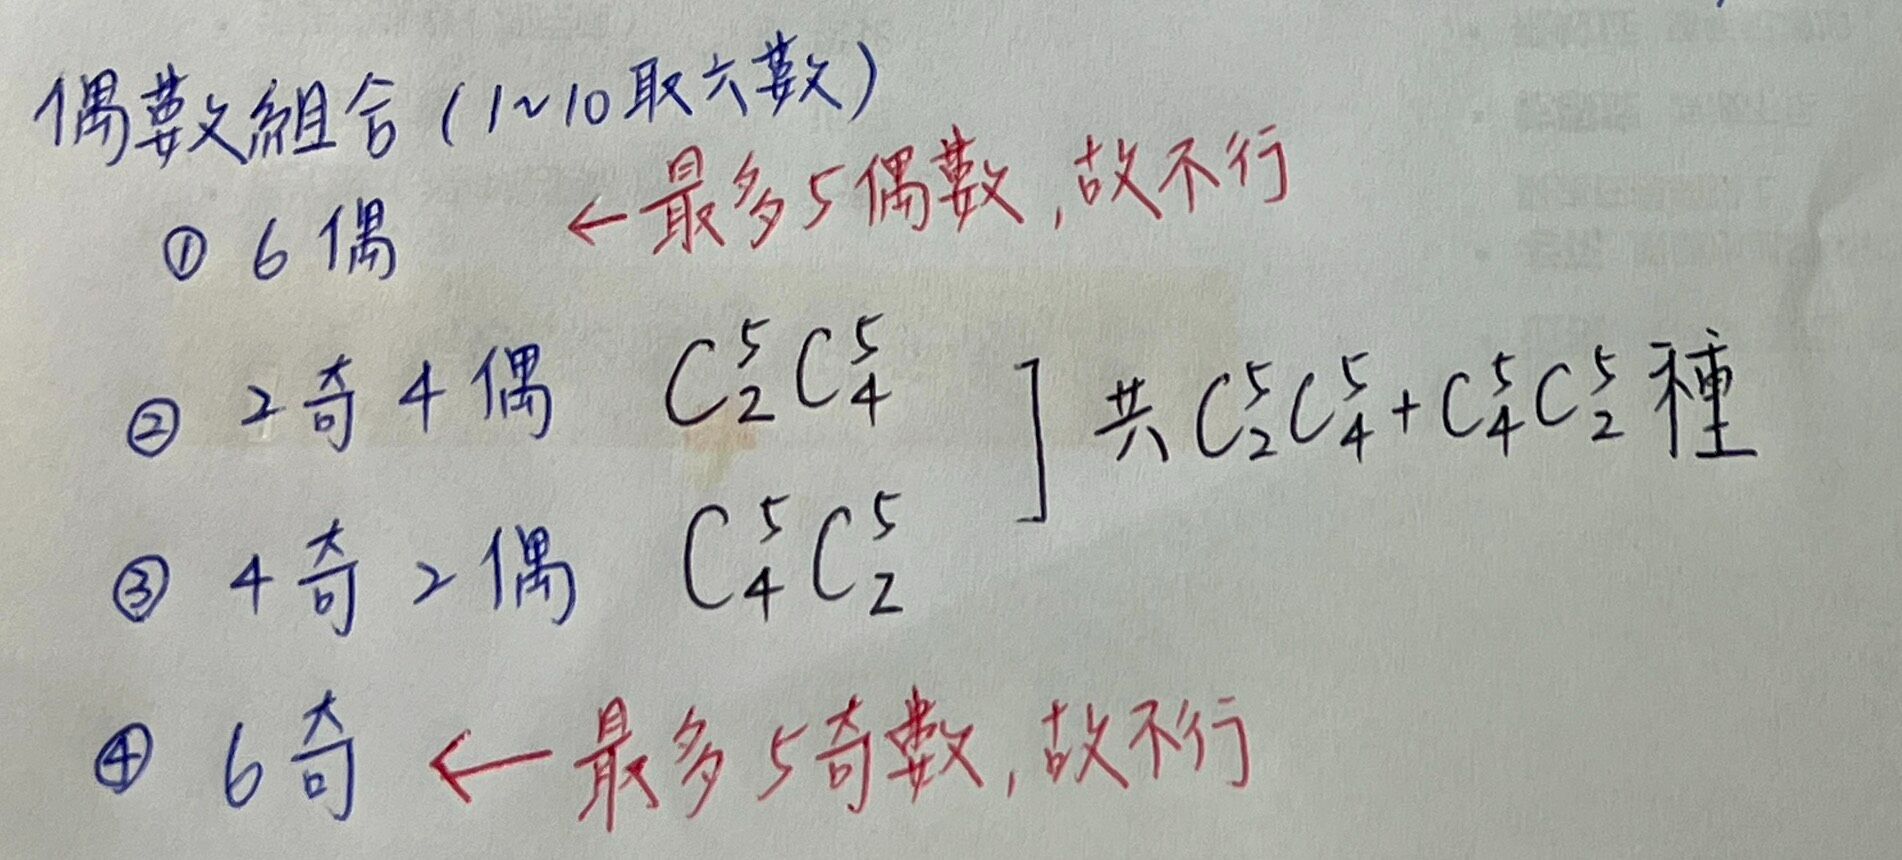 偶數組合(1~10取六數)
① 6偶 ←最多5偶數,故不行
② 2奇4偶 C⁵₂C⁵₄
③ 4奇2偶 C⁵₄C⁵₂
] 共C⁵₂C⁵₄+C⁵₄C⁵₂種
④ 6奇 ←最多5奇數,故不行